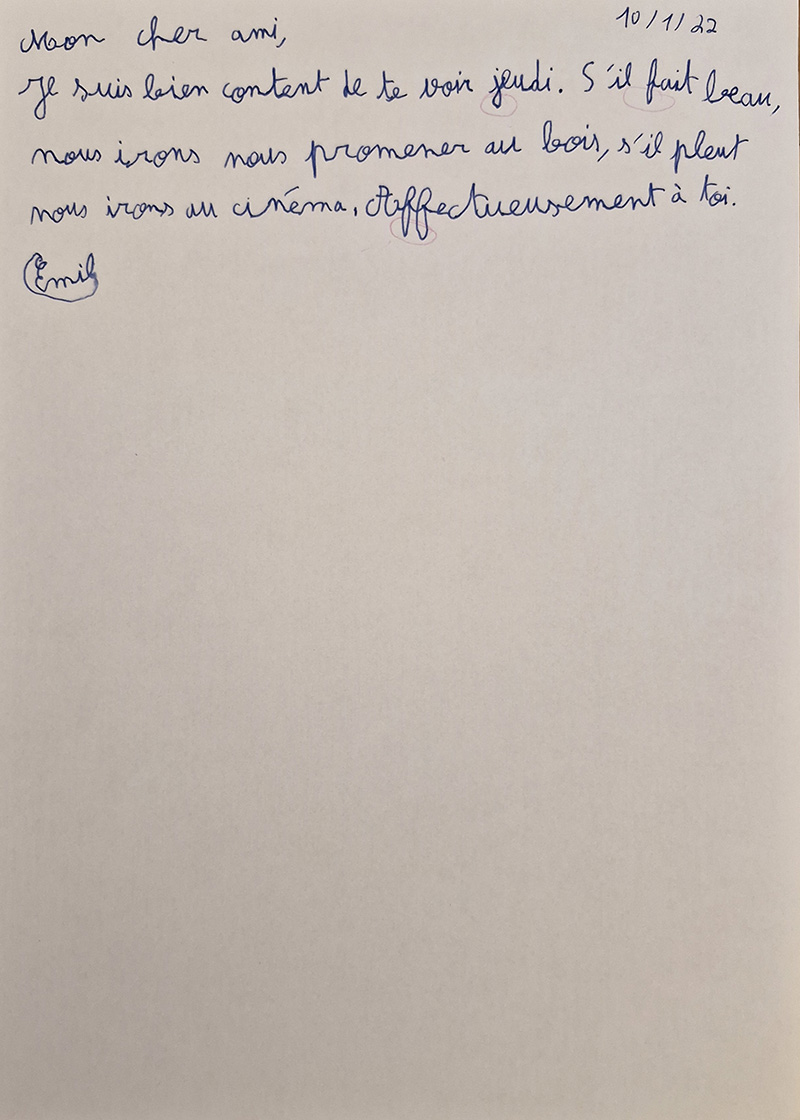 10/1/22
Mon cher ami,
Je suis bien content de te voir jeudi. S'il fait beau,
nous irons nous promener au bois, s'il pleut
nous irons au cinéma. Affectueusement à toi.
Emil